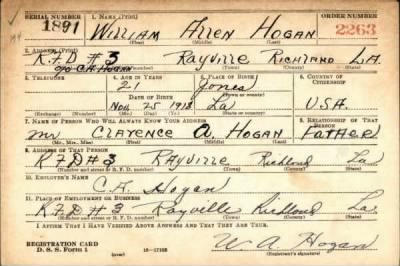 SERIAL NUMBER 1. NAME (Print) ORDER NUMBER
1891 WILLIAM ALLEN HOGAN 2263
(First) (Middle) (Last)
2. ADDRESS (Print)
R.F.D # 3 RAYVILLE RICHLAND LA.
c/o C.A. HOGAN (Town) (County) (State)
3. TELEPHONE 4. AGE IN YEARS 5. PLACE OF BIRTH 6. COUNTRY OF CITIZENSHIP
21 Jones
DATE OF BIRTH (Town or county)
Nov. 25 1918 La U.S.A.
(Exchange) (No.) (Mo.) (Day) (Yr.) (State or country)
7. NAME OF PERSON WHO WILL ALWAYS KNOW YOUR ADDRESS 8. RELATIONSHIP OF THAT PERSON
Mr CLARENCE A. HOGAN FATHER
(Mr., Mrs., Miss) (First) (Middle) (Last)
9. ADDRESS OF THAT PERSON
R F D # 3 RAYVILLE Richland La
(Number and street or R. F. D. number) (Town) (County) (State)
10. EMPLOYER'S NAME
C.A. Hogan
11. PLACE OF EMPLOYMENT OR BUSINESS
R.F.D # 3 Rayville Richland La.
(Number and street or R. F. D. number) (Town) (County) (State)
I AFFIRM THAT I HAVE VERIFIED ABOVE ANSWERS AND THAT THEY ARE TRUE.
REGISTRATION CARD
D. S. S. Form 1 W. A. Hogan
(Registrant's signature)